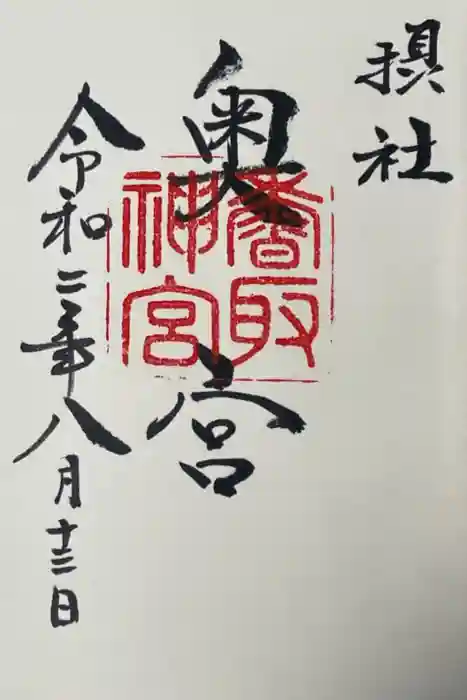 摂社
奥宮
香取
神宮
令和二年八月十三日